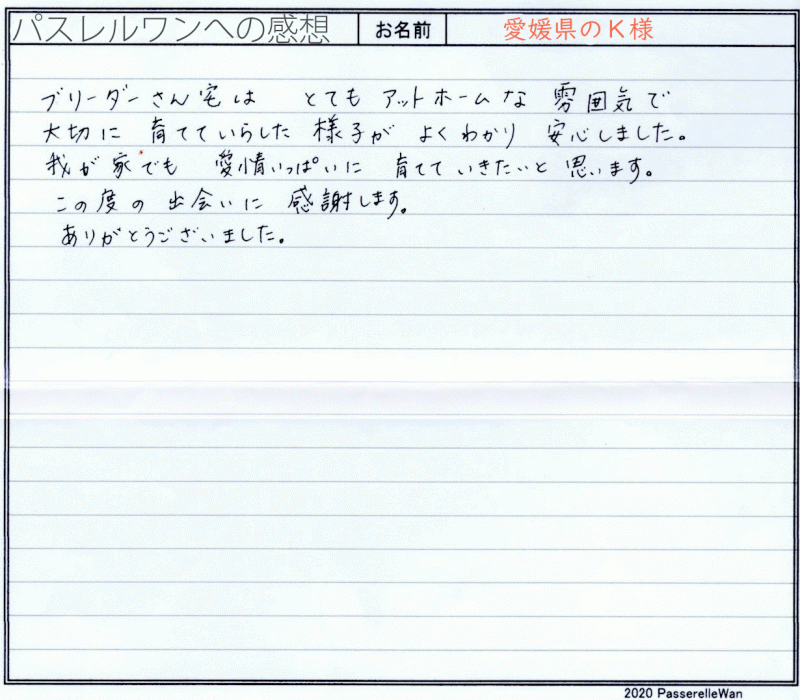 パスレルワンへの感想 お名前 愛媛県のK様
ブリーダーさん宅は とても アットホームな 雰囲気で
大切に 育てていらした 様子が よくわかり 安心しました。
我が家でも 愛情いっぱいに 育てて いきたいと 思います。
この度の 出会いに 感謝します。
ありがとうございました。
2020 PasserelleWan